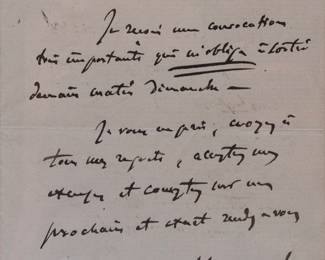 Je reçois une convocation
très importante qui m'oblige à sortir
demain matin Dimanche —
Je vous en prie, croyez à
tous mes regrets, acceptez mes
excuses et comptez sur un
prochain et exact rendez-vous